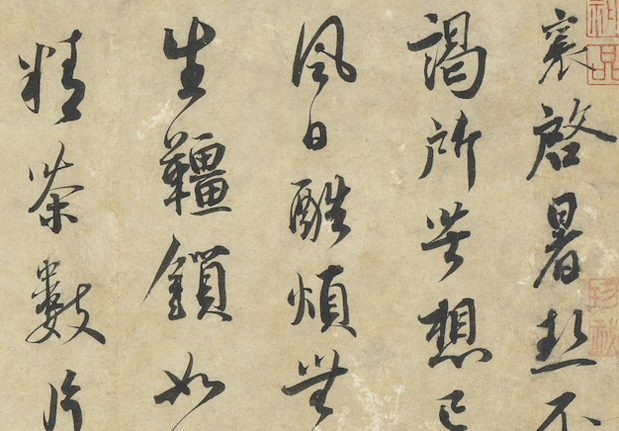 襄啓暑熱不
謁所苦想已
風日酷煩無
生韁鎖如
精茶數片